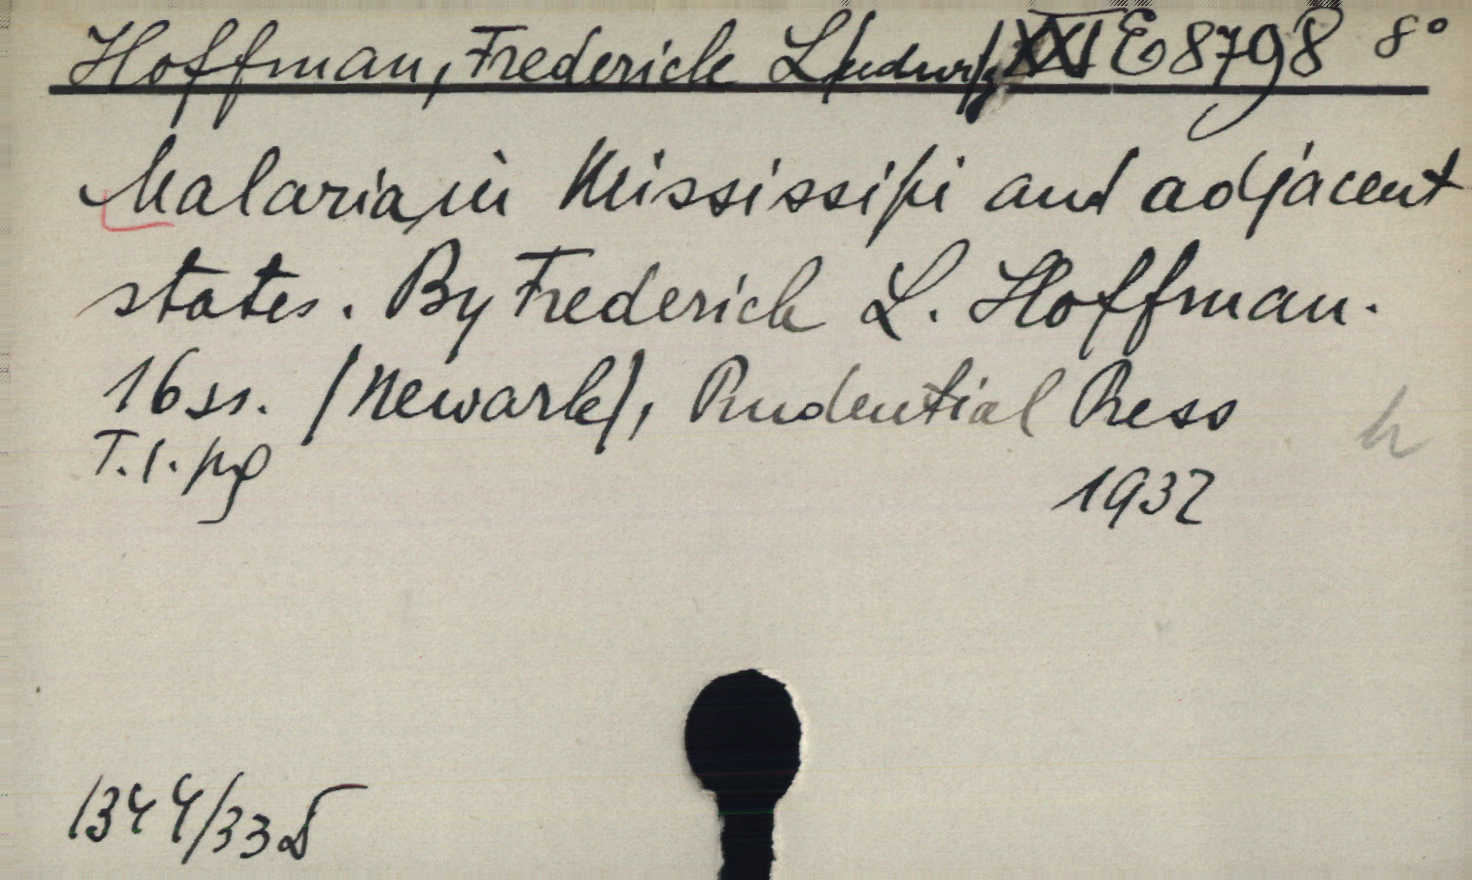 Hoffman, Frederick L/udwig/ XXI E 8798 8°
Malaria, in Mississipi and adjacent
states. By Frederick L. Hoffman.
16 ss. /Newark/, Prudential Press
h
T.1.
1932
1344/33